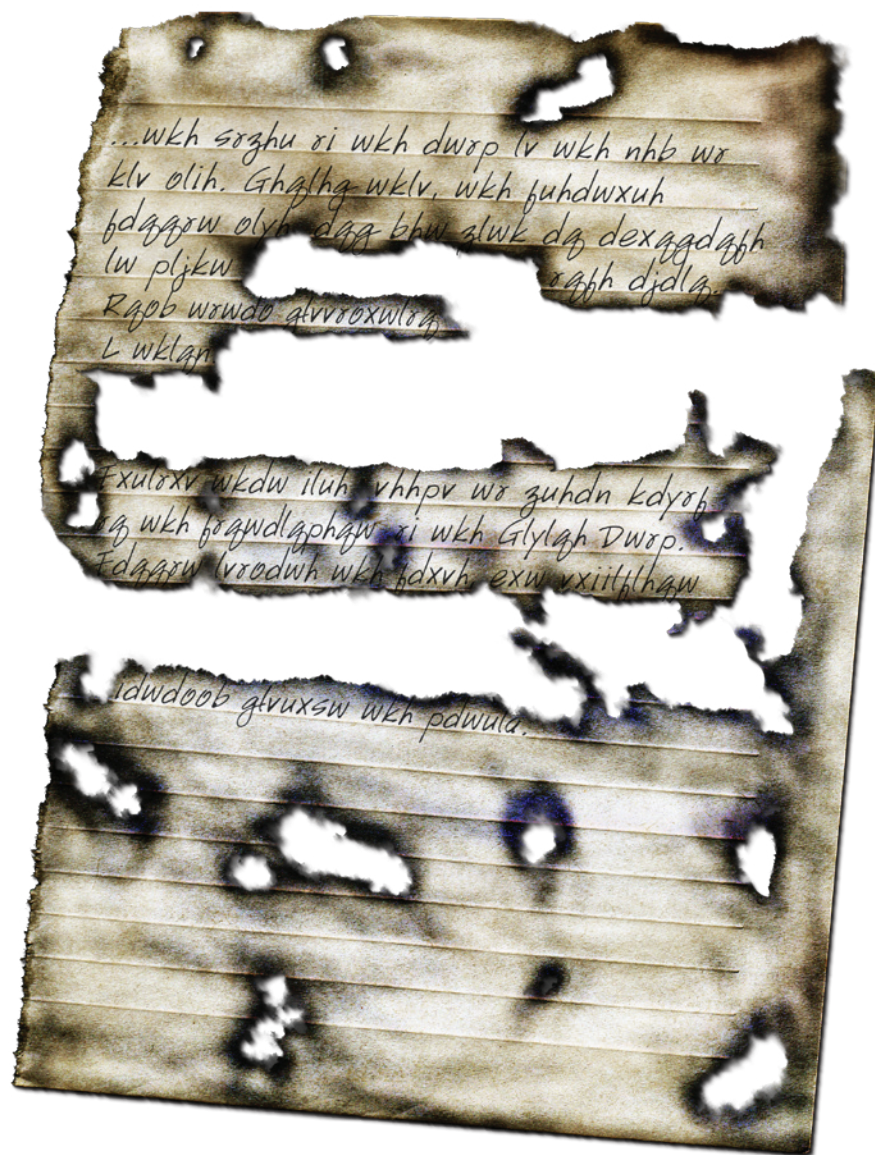 ...wkh srzhu ri wkh dwrp lv wkh nhb wr
klv olih. Ghqlhg wklv, wkh fuhdwxuh
fdqqrw olyh dqg bhw zlwk dq dexqgdqfh
lw pljkw rqfh djdlq.
Rqob wrwdo glvvroxwlrq
L wklqn
Fxulrxv wkdw iluh vhhpv wr zuhdn kdyrf
rq wkh frqwdlqphqw ri wkh Glylqh Dwrp.
Fdqqrw lvrodwh wkh fdxvh exw vxiilflhqw
idwdoob glvuxsw wkh pdwula.